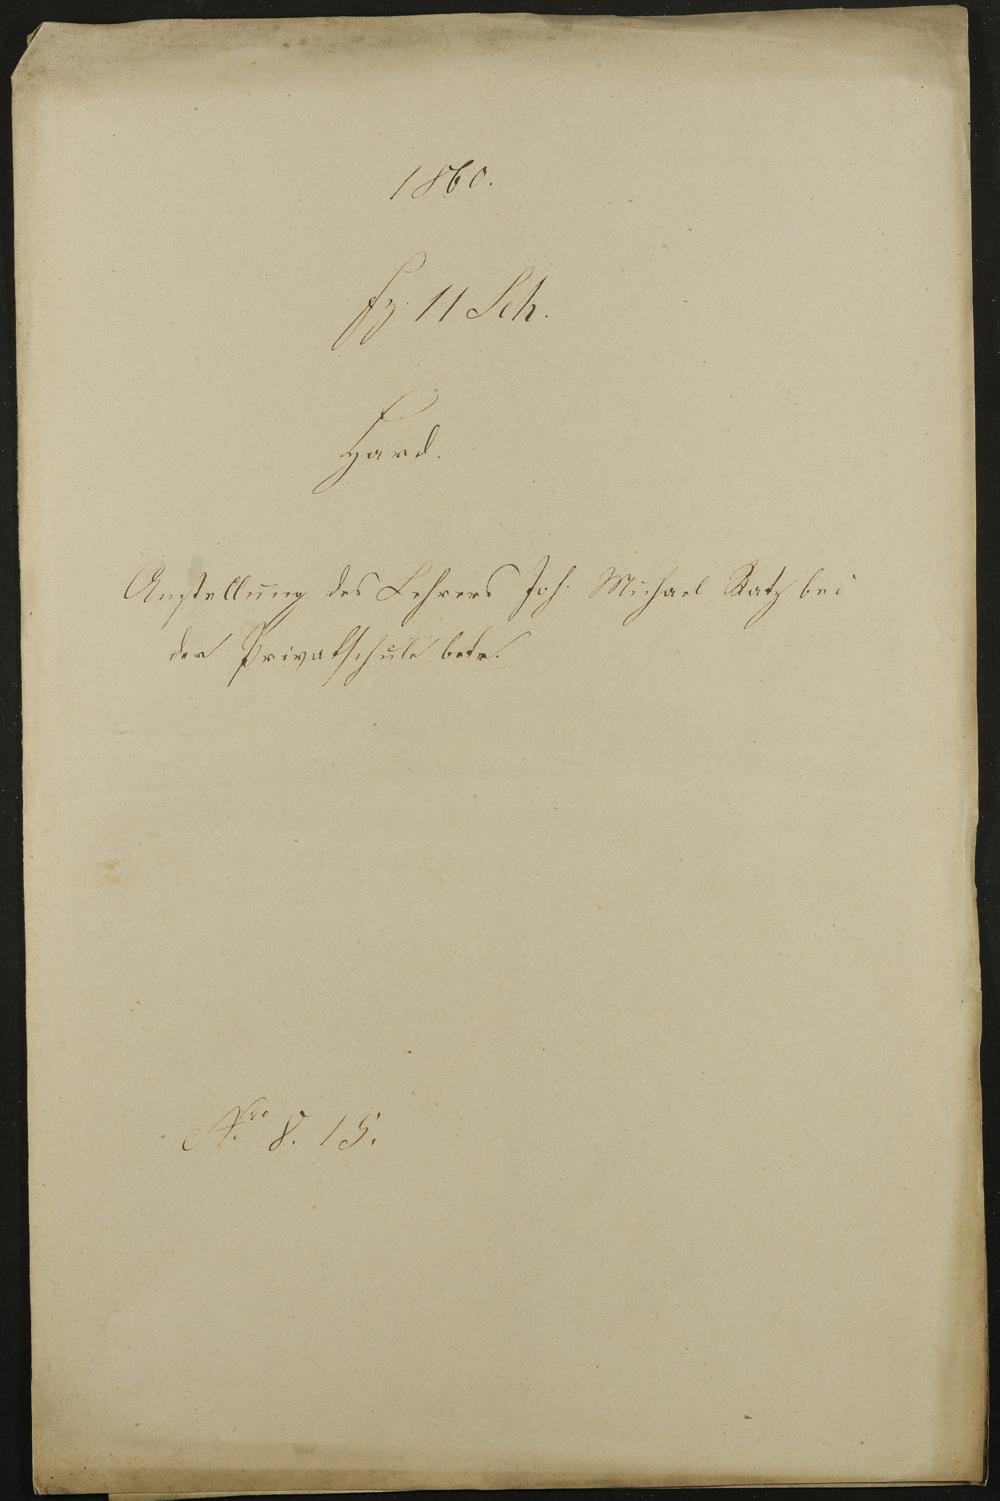 1860.
Fz. 11 Sch.
Hard.
Anstellung des Lehrers Joh. Michael Katz bei
der Privatschule betr.
No. 8. 15.